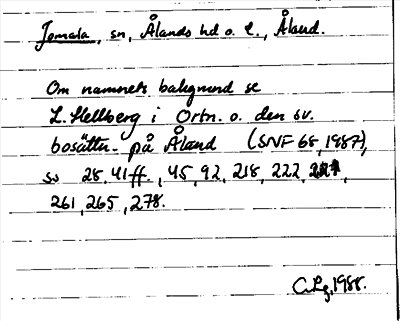 Jomala, sn, Ålands hd o. l., Åland.
Om namnets bakgrund se
L. Hellberg i Ortn. o. den sv.
bosättn. på Åland (SNF 68, 1987),
ss 28, 41 ff., 45, 92, 218, 222,
261, 265, 278.
1988.